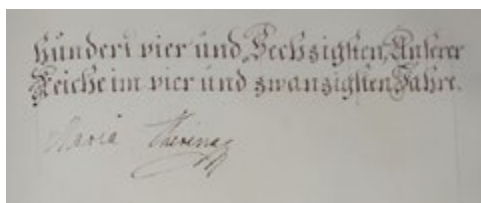 hundert vier und Sechsigsten, Unserer
Reiche im vier und zwanzigsten Jahre.
Maria Theresia